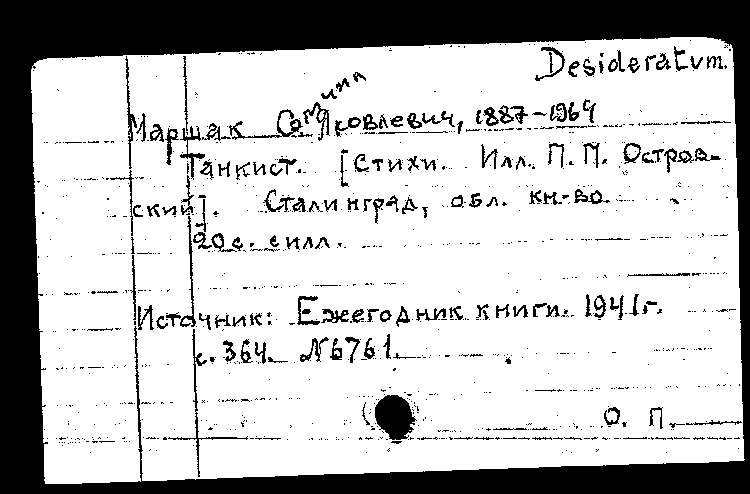 Desideratum.
Маршак Самуил Яковлевич, 1887-1964
Танкист. [Стихи. Илл. П. П. Островский]. Сталинград, обл. кн-во.
20 с. с илл.
Источник: Ежегодник книги. 1941 г.
с. 364. №6761.
О. П.